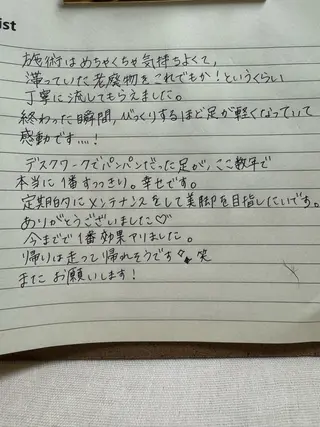 ist
施術はめちゃくちゃ気持ちよくて、
滞っていた老廃物をこれでもか!というくらい
丁寧に流してもらえました。
終わった瞬間、びっくりするほど足が軽くなっていて
感動です....!
デスクワークでパンパンだった足が、ここ数年で
本当に1番すっきり。幸せです。
定期的にメンテナンスをして美脚を目指したいです。
ありがとうございました♡
今までで1番効果アリました。
帰りは走って帰れそうです 笑
またお願いします!